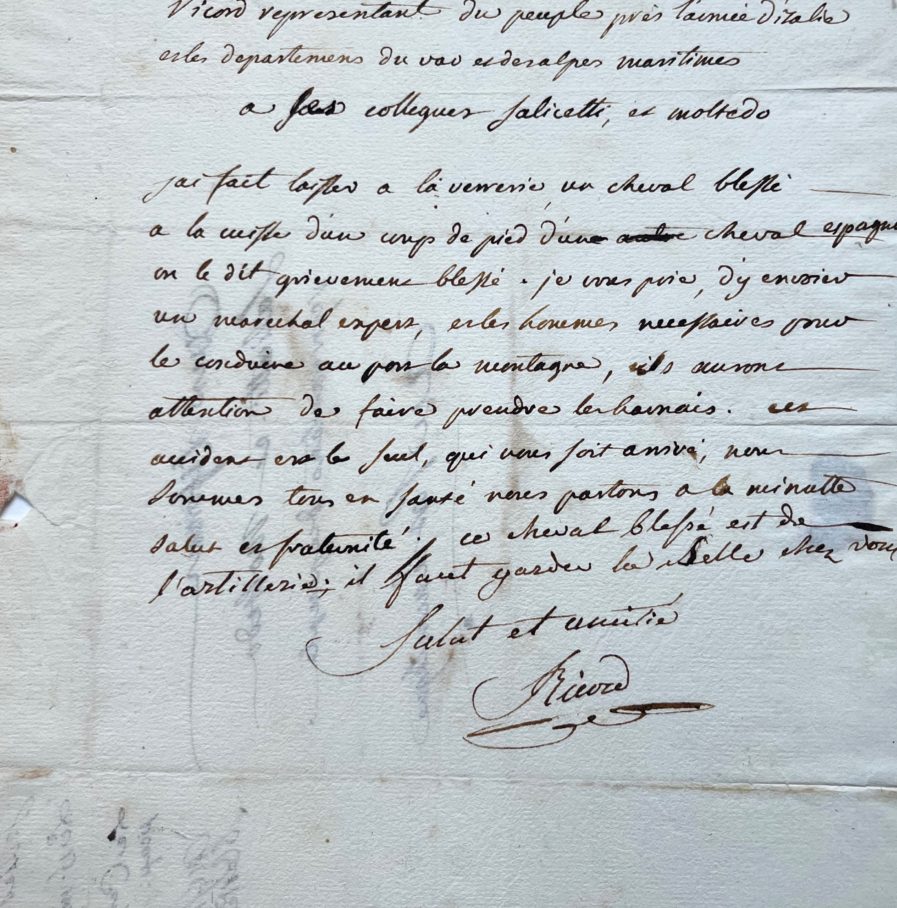 Ricord representant du peuple près l'armée d'italie
et les departemens du var et des alpes maritimes
a ses collegues Salicetti, et moltedo
j'ai fait laisser a la verrerie, un cheval blessé
a la cuisse d'un coup de pied d'une cheval espagno
on le dit grievement blessé. je vous prie, d'y envoier
un marechal expert, et les hommes necessaires pour
le conduire au port la montagne, ils auront
attention de faire prendre les harnais. cet
accident est le seul, qui nous soit arrivé, nous
Sommes tous en santé nous partons a la minutte
salut et fraternité. ce cheval blessé est de
l'artillerie; il faut garder la selle chez vous
Salut et amitié
Ricord